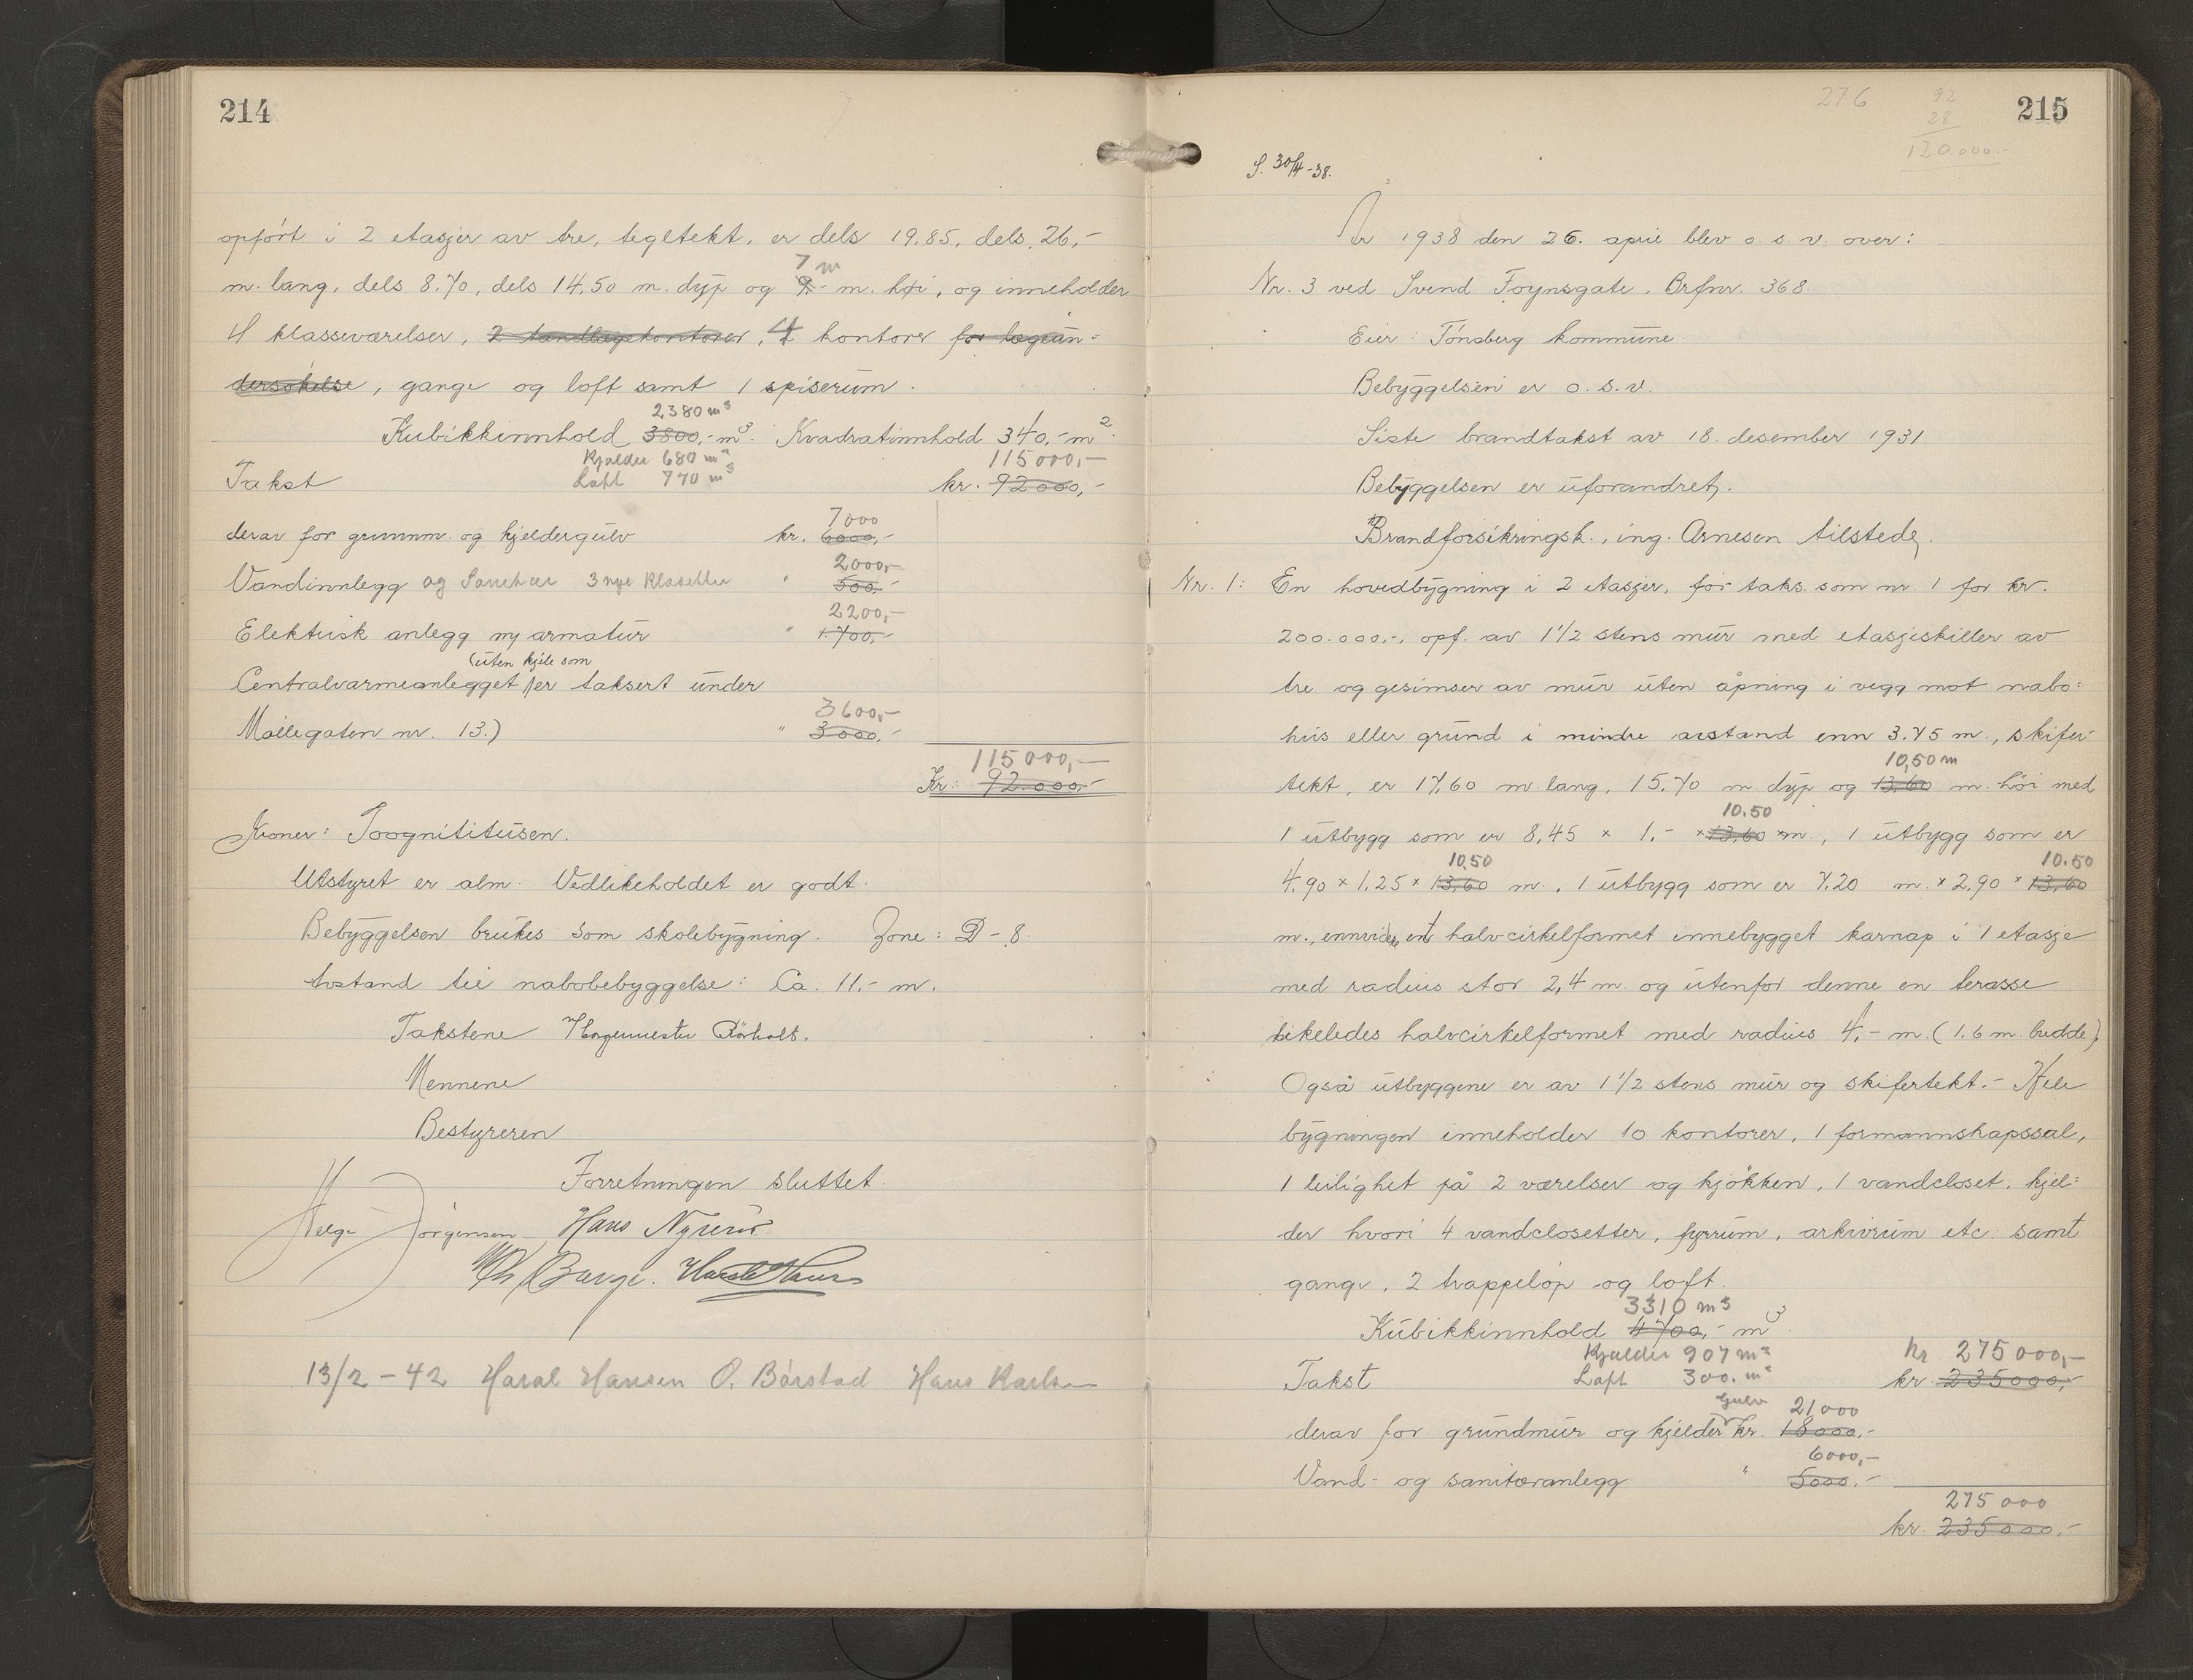 214
opført i 2 etasjer av tre, tegltekt, er dels 19.85, dels 26,-
7 m
m. lang, dels 8.70, dels 14.50 m. dyp og 9.- m. høi, og inneholder
4 klasseværelser, 2 tandlægekontorer, 4 kontorer for lægeun-
dersøkelse, gange og loft samt 1 spiserum.
2380 m³
Kubikkinnhold 3800,- m³. Kvadratinnhold 340,- m².
Kjælder 680 m³ 115000,-
Takst Loft 770 m³ kr. 92000,-
7000
derav for grunnm. og kjeldergulv kr. 6000,-
2000,-
Vandinnlegg og 3 nye Klosetter " 500,-
2200,-
Elektrisk anlegg ny armatur " 1.700,-
(uten kjele som
Centralvarmeanlegget er taksert under
3600,-
Møllegaten nr. 13.) " 3000,-
115000,-
Kr: 92.000,-
Kroner:
Utstyret er alm. Vedlikeholdet er godt.
Bebyggelsen brukes som skolebygning. Zone: D - 8.
Avstand til nabobebyggelse: Ca. 11.- m.
Takstene
Mennene
Bestyreren
Forretningen sluttet.
Helge Jörgensen
13/2 - 42 Haral Hansen O. Bårstad Hans Karlsen
276 92
28
120.000.-
215
S. 30/4 - 38.
År 1938 den 26. april blev o. s. v. over:
Nr. 3 ved Svend Foynsgate. Brfnr. 368.
Eier: Tönsberg kommune.
Bebyggelsen er o. s. v.
Siste brandtakst av 18. desember 1931
Bebyggelsen er uforandret.
Brandforsikringsk., ing. Arnesen tilstede.
Nr. 1: En hovedbygning i 2 etasjer, før taks. som nr. 1 for kr.
200.000.-, opf. av 1 1/2 stens mur med etasjeskiller av
tre og gesimser av mur uten åpning i vegg mot nabo-
hus eller grund i mindre avstand enn 3.75 m., skifer-
10,50 m
tekt, er 17.60 m lang, 15.70 m. dyp og 13,60 m. høi med
10.50
1 utbygg som er 8,45 × 1.- × 13,60 m., 1 utbygg som er
10.50 10.50
4.90 × 1.25 × 13,60 m., 1 utbygg som er 7.20 m. × 2.90 × 13,60
m., ennvidere et halvcirkelformet innebygget karnap i 1 etasje
med radius stor 2,4 m. og utenfor denne en terasse
likeledes halvcirkelformet med radius 4.- m. (1.6 m. bredde).
Også utbyggene er av 1 1/2 stens mur og skifertekt.- Hele
bygningen inneholder 10 kontorer, 1 formannskapssal,
1 leilighet på 2 værelser og kjøkken, 1 vandcloset, kjel-
der hvori 4 vandclosetter, fyrrum, arkivrum etc. samt
gange, 2 trappeløp og loft.
3310 m³
Kubikkinnhold 4700,- m³.
Kjælder 907 m³ kr 275000,-
Takst Loft 300. m³ kr. 235000,-
gulv 21000
derav for grundmur og kjelder kr. 18000.-
6000,-
Vand- og sanitæranlegg " 5000.-
275000
kr. 235000.-